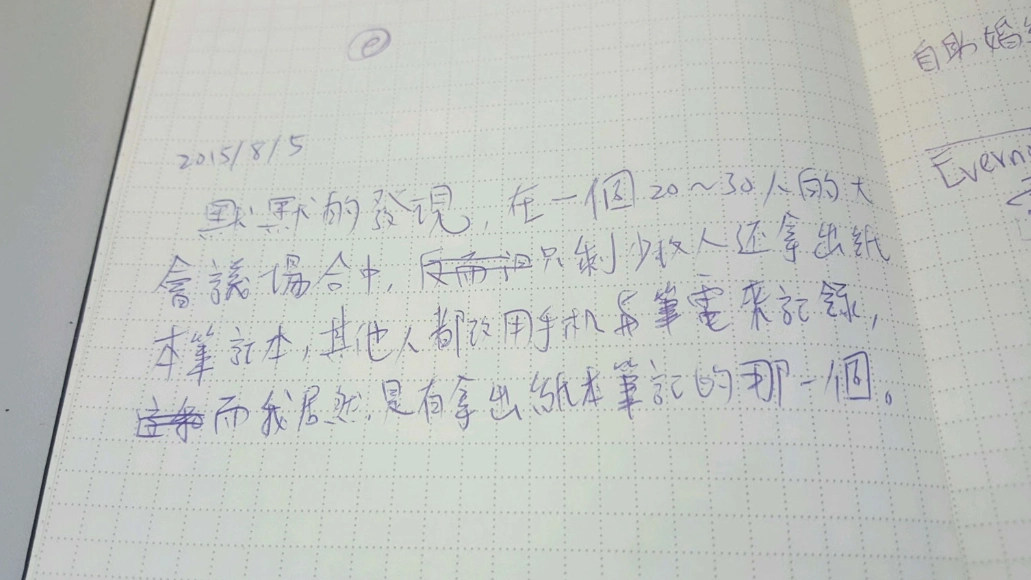 e
2015/8/5
默默的發現，在一個20~30人的大
會議場合中，反而只剩少數人还拿出紙
本筆記本，其他人都改用手机与筆電來記錄，
而我居然是有拿出紙本筆記的那一個。
自助婚
Evern